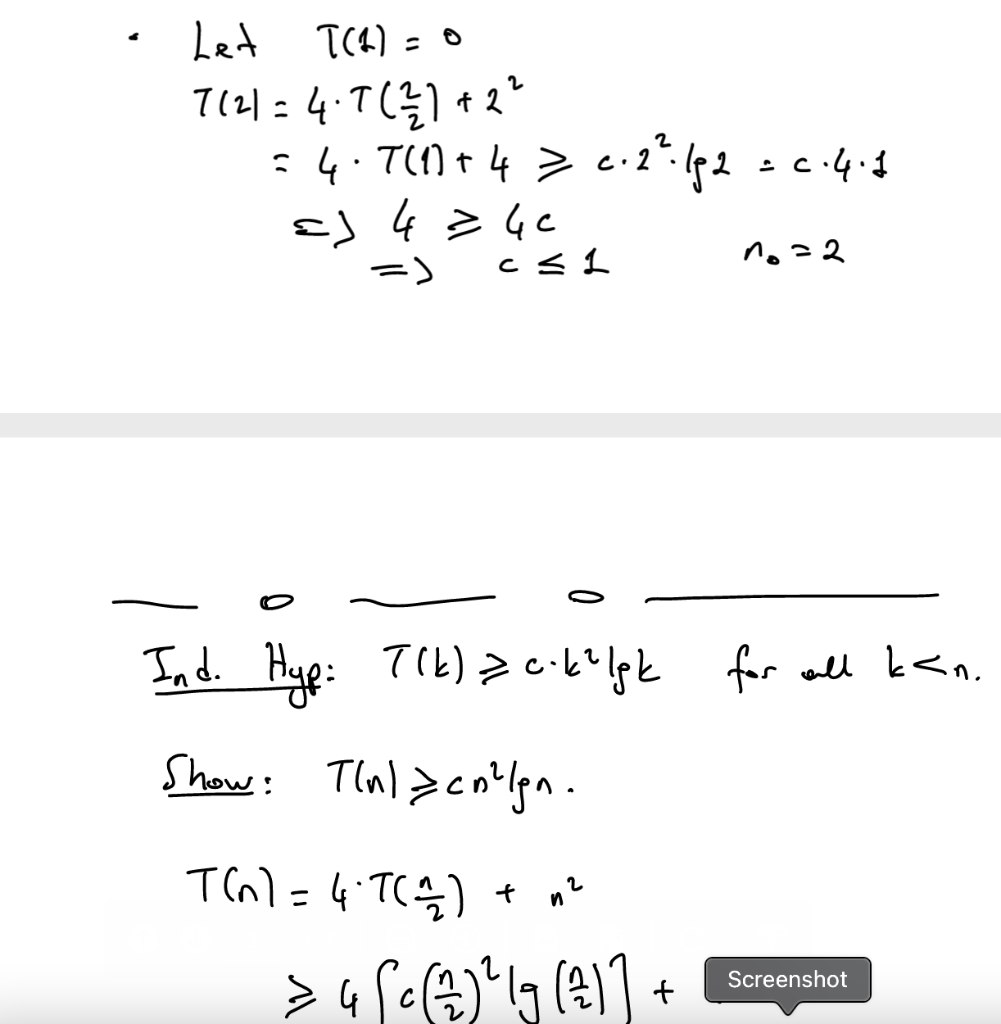 · Let T(1) = 0
T(2) = 4·T(2/2) + 2²
= 4 · T(1) + 4 ≥ c·2²·lg2 = c·4·1
=> 4 ≥ 4c
=> c ≤ 1 n₀ = 2
Ind. Hyp: T(k) ≥ c·k² lgk for all k<n.
Show: T(n) ≥ cn² lgn.
T(n) = 4·T(n/2) + n²
≥ 4 [c(n/2)² lg(n/2)] +
Screenshot